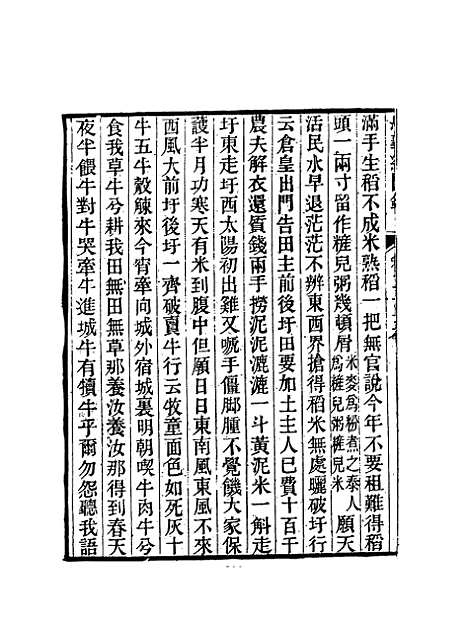 滿手生稻不成米熟稻一把無官說今年不要租難得稻
頭一兩寸留作粧兒粥幾頓屑米麥爲粉煮之泰人爲粧兒粥粧兒米願天
活民水早退茫茫不辨東西界搶得稻米無處曬破圩行
云倉皇出門告田主前後圩田要加土主人已費十百千
農夫解衣還質錢兩手撈泥泥漉漉一斗黃泥米一斛走
圩東走圩西太陽初出雞又嗁手傴脚腫不覺饑大家保
護半月功寒天有米到腹中但願日日東南風東風不來
西風大前圩後圩一齊破賣牛行云牧童面色如死灰十
牛五牛觳觫來今宵牽向城外宿城裏明朝喫牛肉牛兮
食我草牛兮耕我田無田無草那養汝養汝那得到春天
夜半餵牛對牛哭牽牛進城牛有犢牛乎爾勿怨聽我語